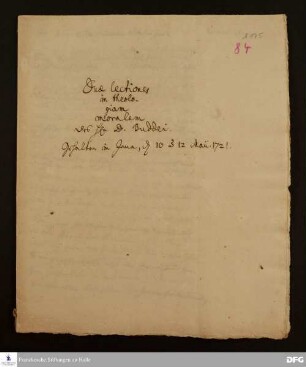 84
Duæ lectiones
in theolo-
giam
moralem
des Hn D. Buddei.
Gehalten in Jena, d 10 & 12 Maii. 1721.
Franckesche Stiftungen zu Halle
DFG